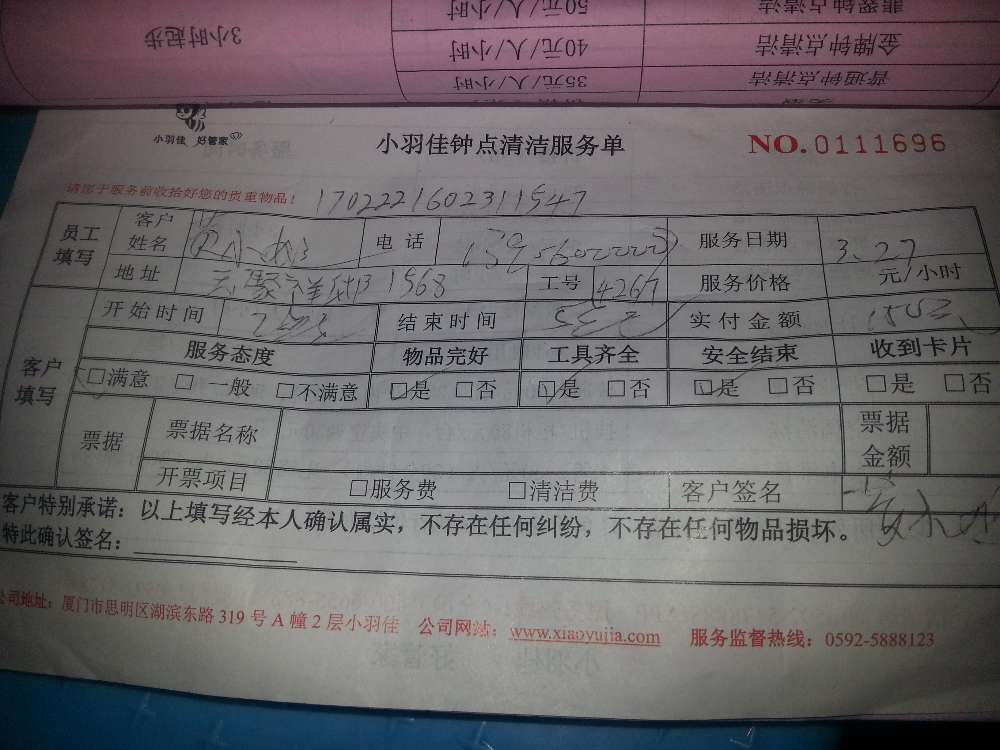 翡翠钟点清洁 50元/人/小时
金牌钟点清洁 40元/人/小时 3小时起步
普通钟点清洁 35元/人/小时
小羽佳 好管家
小羽佳钟点清洁服务单 NO.0111696
请您于服务前收拾好您的贵重物品!
1702221602311547
员工填写 客户姓名 电话 服务日期 3.27
地址 1568 工号 4267 服务价格 元/小时
客户填写 开始时间 结束时间 实付金额
服务态度 物品完好 工具齐全 安全结束 收到卡片
□满意 □一般 □不满意 □是 □否 □是 □否 □是 □否 □是 □否
票据 票据名称 票据金额
开票项目 □服务费 □清洁费 客户签名
客户特别承诺：以上填写经本人确认属实，不存在任何纠纷，不存在任何物品损坏。
特此确认签名：
公司地址：厦门市思明区湖滨东路 319 号 A 幢 2 层小羽佳 公司网站：www.xiaoyujia.com 服务监督热线：0592-5888123